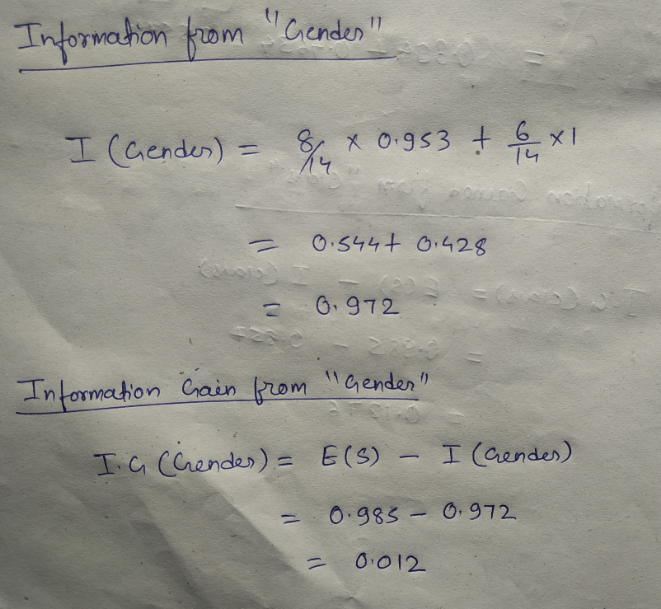 Information from "Gender"
I (Gender) = 8/14 × 0.953 + 6/14 × 1
= 0.544 + 0.428
= 0.972
Information Gain from "Gender"
I.G (Gender) = E(S) - I (Gender)
= 0.985 - 0.972
= 0.012